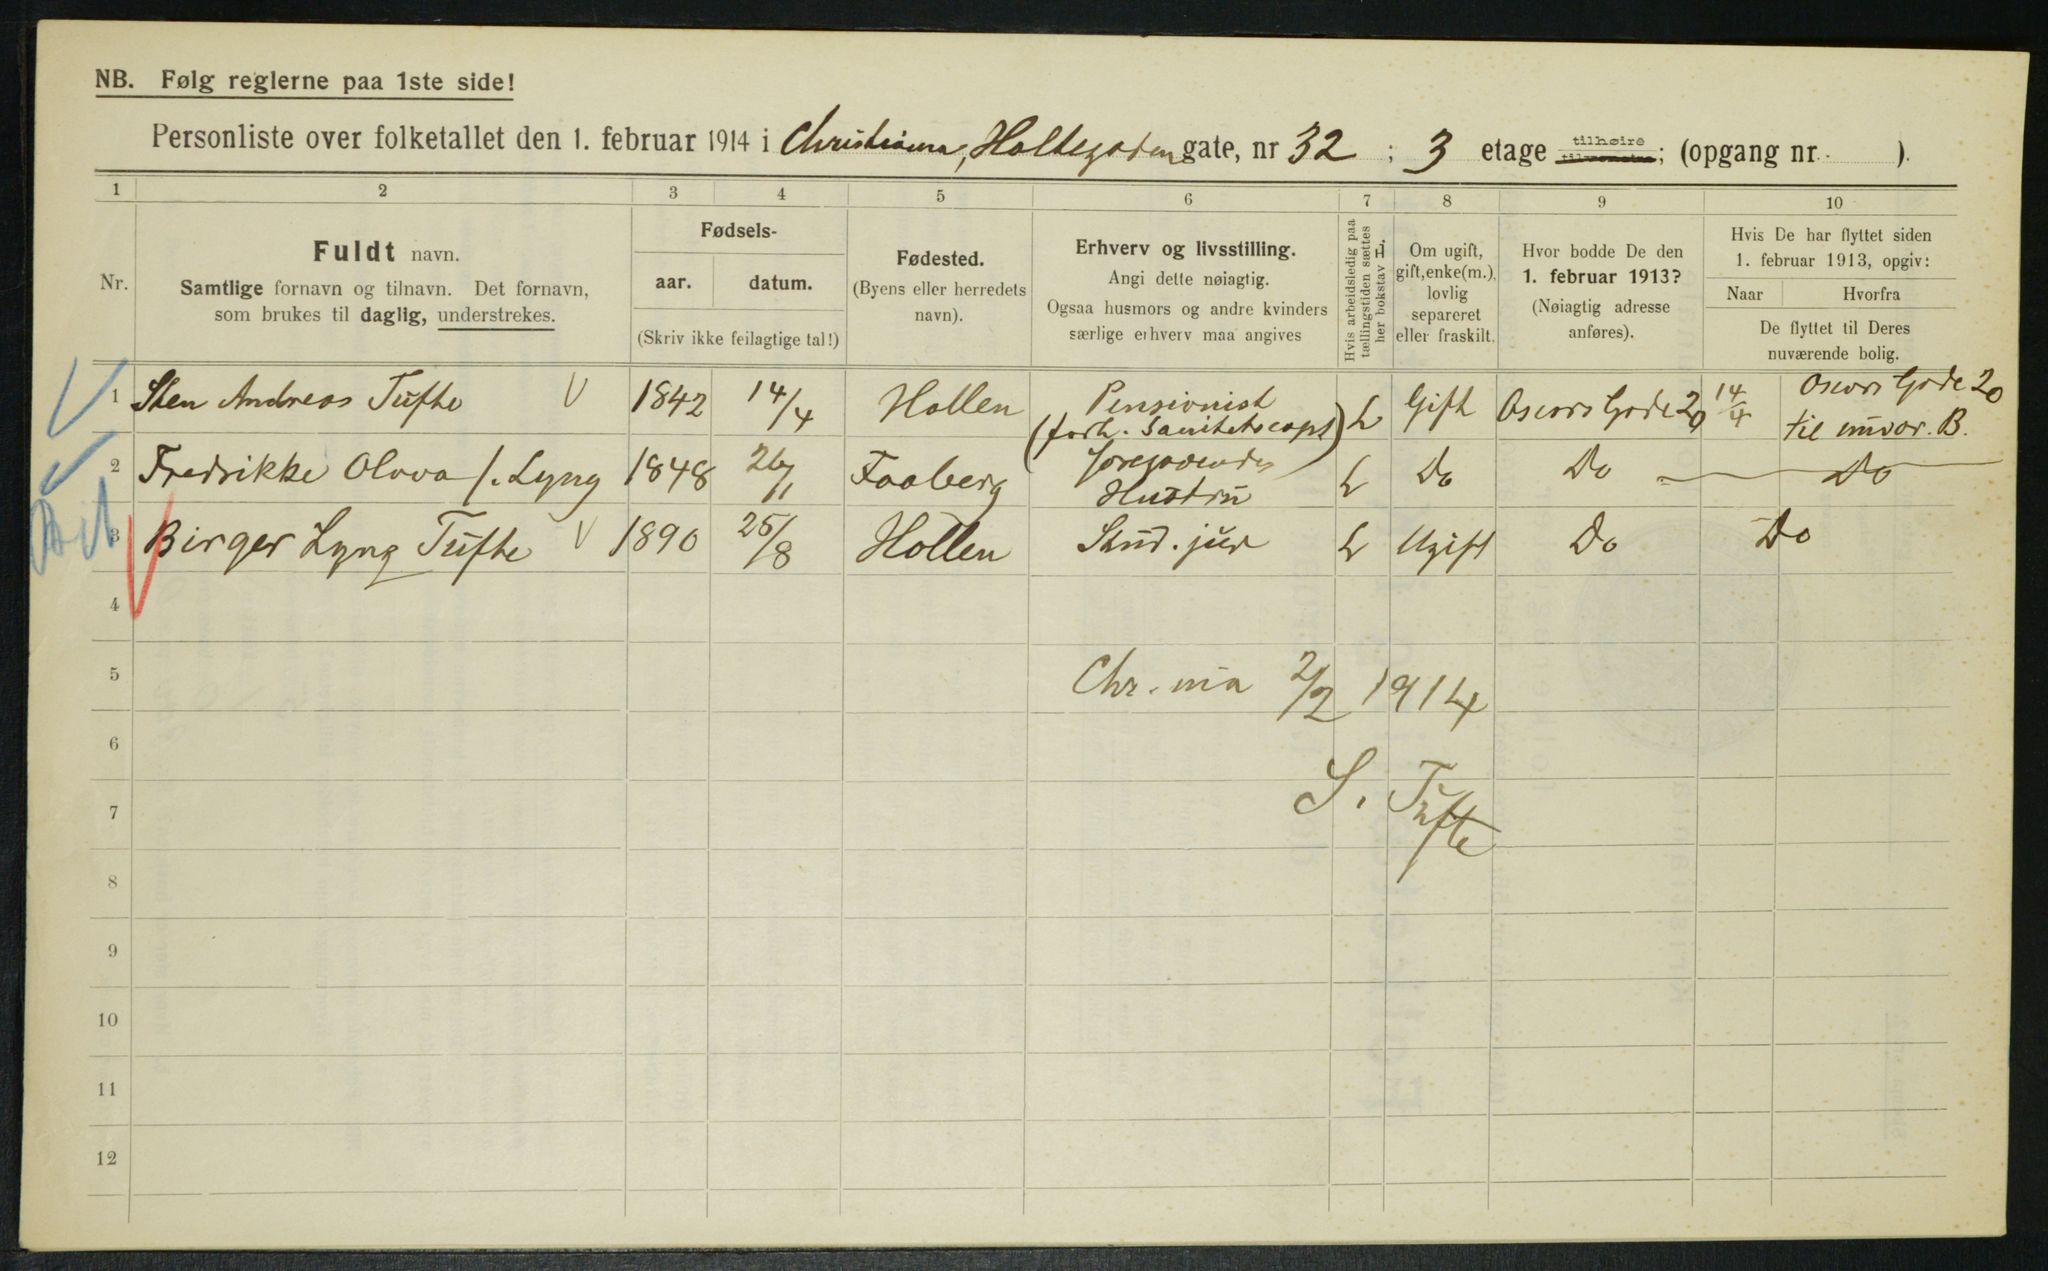 NB. Følg reglerne paa 1ste side!
Personliste over folketallet den 1. februar 1914 i Christiania, Holtegaden gate, nr 32 ; 3 etage tilhøire tilvenstre; (opgang nr. ).
1 2 3 4 5 6 7 8 9 10
Nr.
Fuldt navn.
Samtlige fornavn og tilnavn. Det fornavn,
som brukes til daglig, understrekes.
Fødsels-
aar. datum.
(Skriv ikke feilagtige tal!)
Fødested.
(Byens eller herredets
navn).
Erhverv og livsstilling.
Angi dette nøiagtig.
Ogsaa husmors og andre kvinders
særlige erhverv maa angives
Hvis arbeidsledig paa
tællingstiden sættes
her bokstav L.
Om ugift,
gift, enke(m.),
lovlig
separeret
eller fraskilt.
Hvor bodde De den
1. februar 1913?
(Nøiagtig adresse
anføres).
Hvis De har flyttet siden
1. februar 1913, opgiv:
Naar Hvorfra
De flyttet til Deres
nuværende bolig.
1 Sten Andreas Tufte V 1842 14/4 Hollen Pensionist (forh. Sanitetscapt) L Gift Oscars Gade 20 14/4 Oscars Gade 20 til nuvær. B.
2 Fredrikke Olava f. Lyng 1848 Faaberg Foregaaendes Hustru L Do Do Do
3 Birger Lyng Tufte V 1890 25/8 Hollen Stud. jur L Ugift Do Do
4
5 Chr.nia 2/2 1914
6
7 S. Tufte
8
9
10
11
12